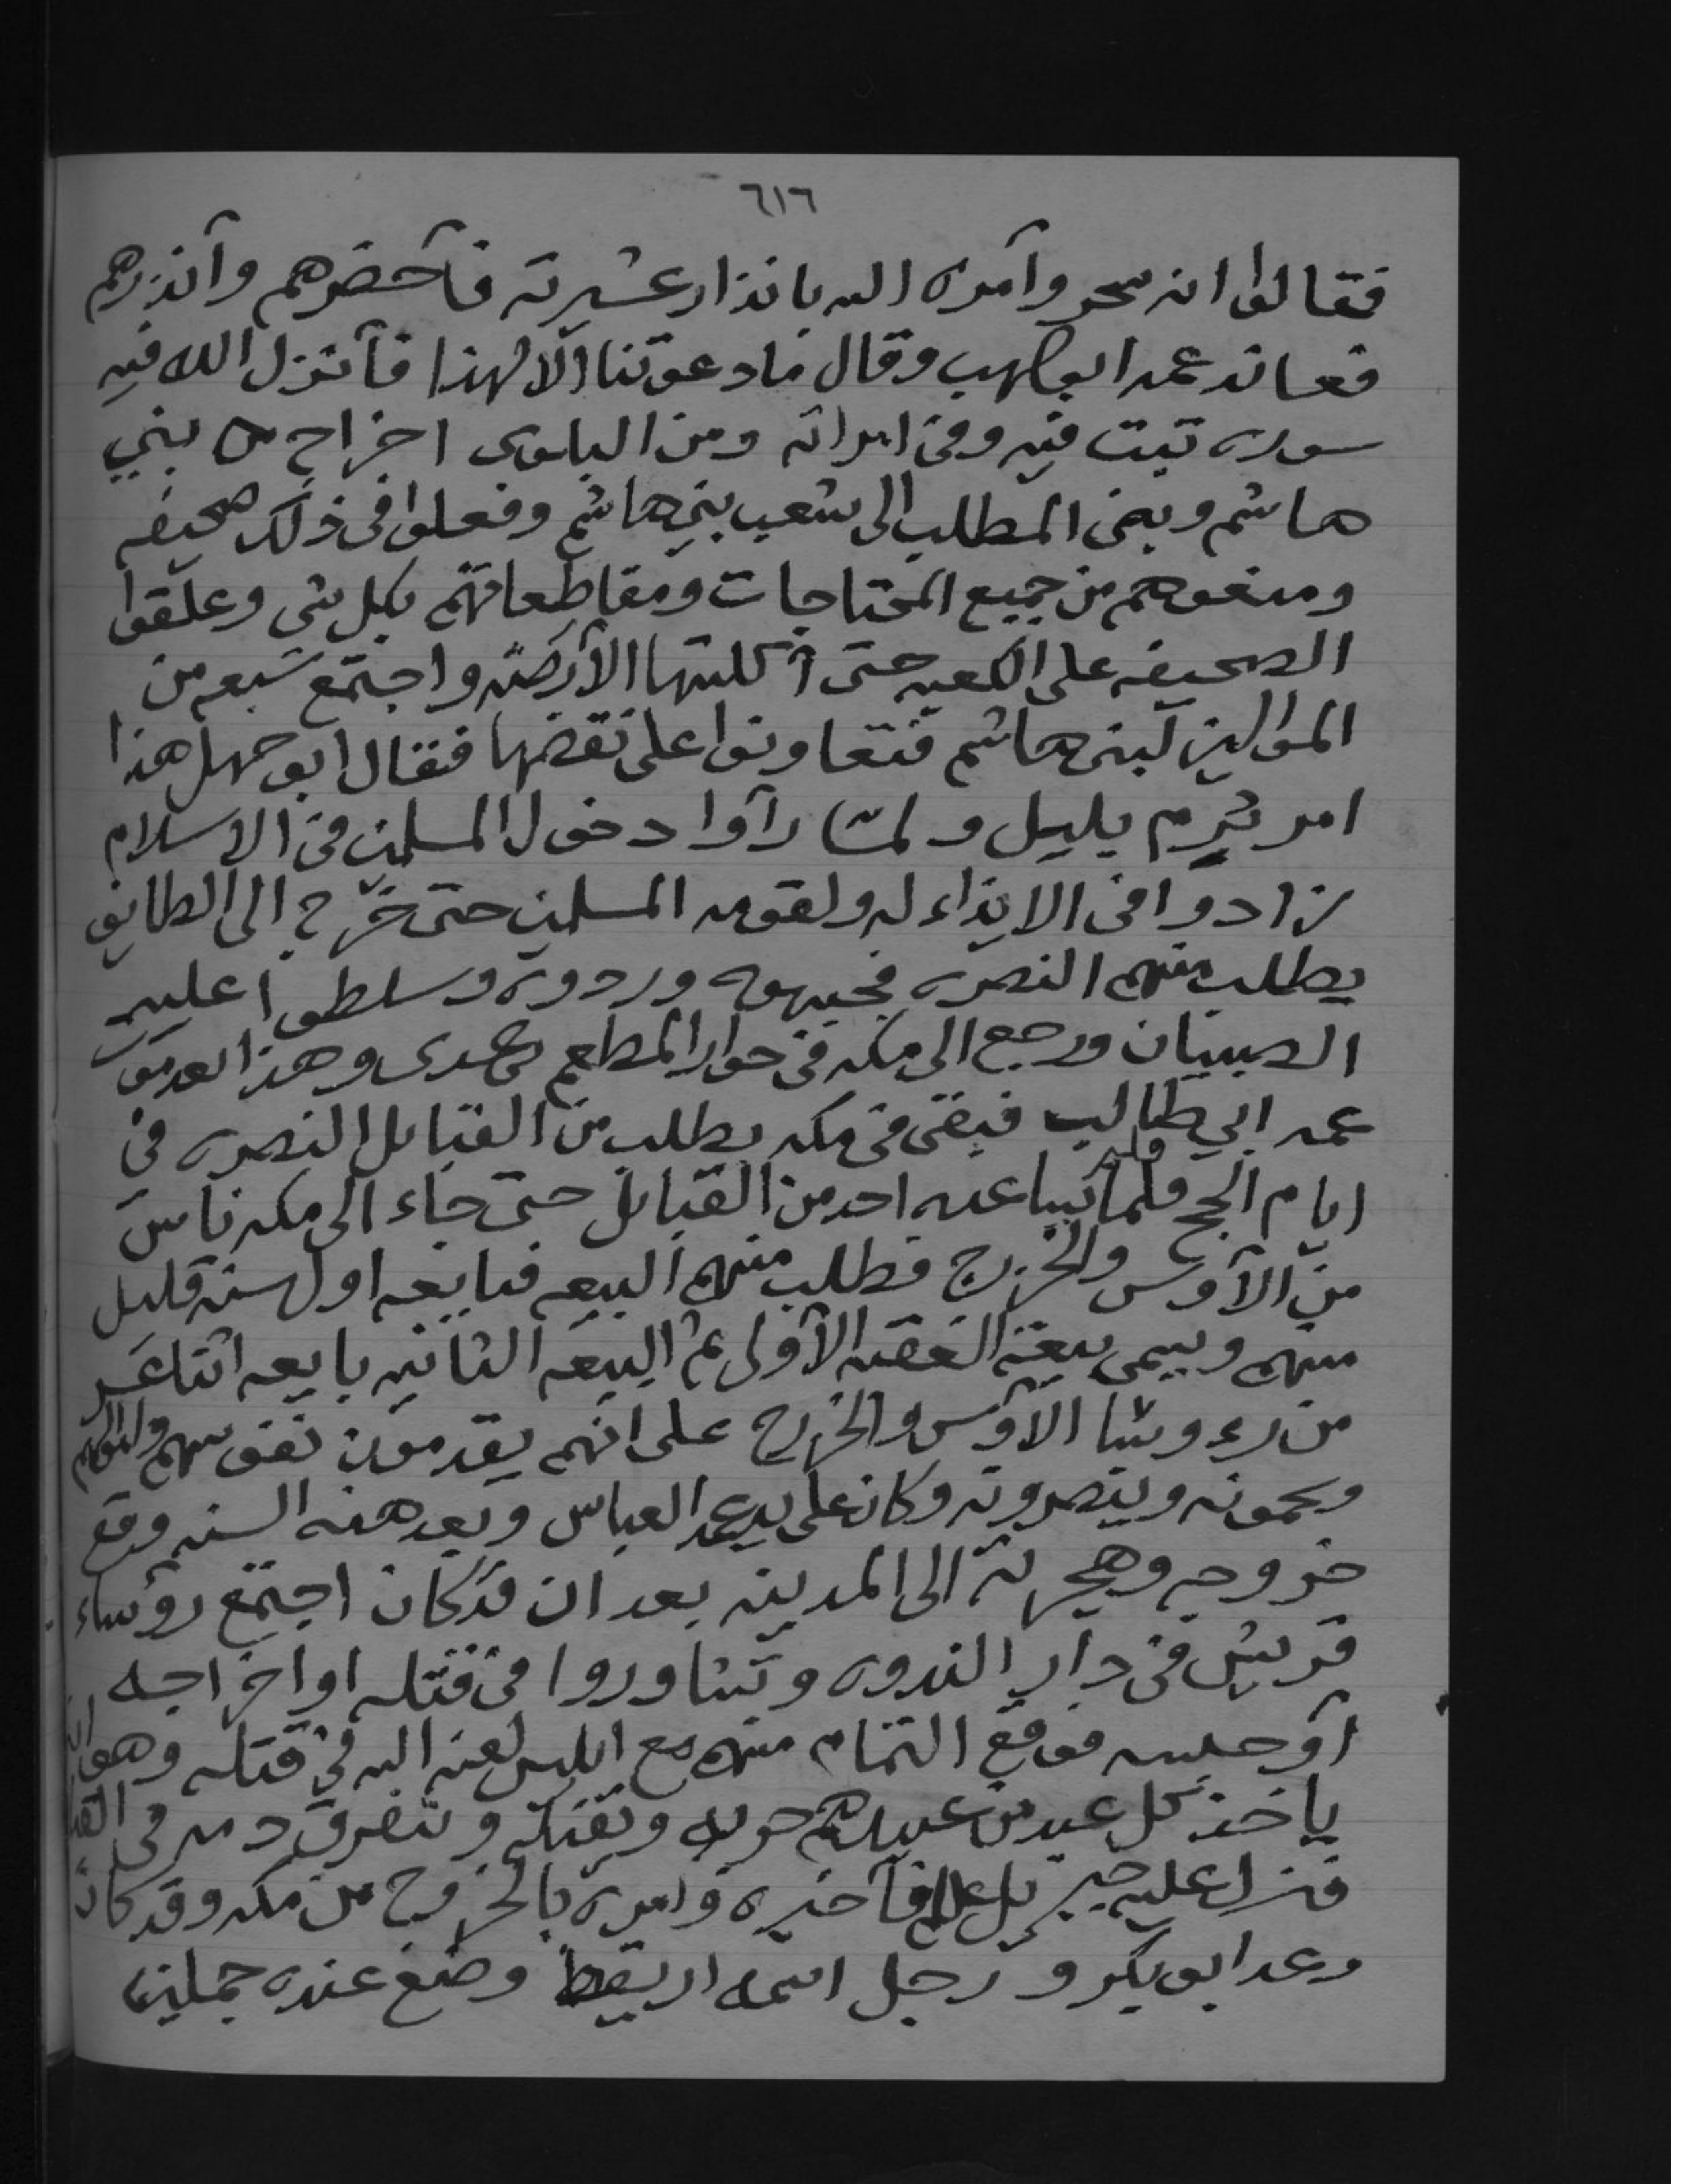 ٦١٦
فقالوا انه سحر وآمره الله بانذار عشيرته فأحضرهم وآنذرهم
فعانده عمه ابو لهب وقال ما دعوتنا الّا لهذا فأنزل الله فيه
سوره تبت فيه وفي امراته ومن البلوى اخراج من بني
هاشم وبني المطلب الى شعب بني هاشم وفعلوا في ذلك صحيفه
ومنعوهم من جميع المحتاجات ومقاطعاتهم بكل شي وعلقوا
الصحيفه على الكعبه حتى أكلتها الأرضه واجتمع سبعه من
الموالين لبني هاشم فتعاونوا على نقضها فقال ابو جهل هذا
امر بُرم بليل ولمّا رآوا دخول المسلمين في الاسلام
زادوا في الايذاء له ولقومه المسلمين حتى خرج الى الطايف
يطلب منهم النصره فجبهوه وردوه وسلطوا عليه
الصبيان ورجع الى مكه في جوار المطعم بن عدى وهذا بعد موت
عمه ابي طالب فبقى في مكه يطلب من القبايل النصره في
ايام الحج فلم يبايعه احد من القبايل حتى جاء الى مكه ناس
من الآوس والخزرج فطلب منهم البيعه فبايعه اول سنه قليل
منهم ويسمى بيعة العقبه الأولى ثم البيعه الثانيه بايعه اثنا عشر
من رءوساً الآوس والخزرج على انهم يقدمون نفوسهم واموالهم
ويحمونه وينصرونه وكان على يد عمه العباس وبعد هذه السنه وقع
خروجه وهجرته الى المدينه بعد ان قد كان اجتمع رؤساء
قريش في دار الندوه وتشاوروا في قتله او اخراجه
آو حبسه فوقع التمام منهم مع ابليس لعنه الله في قتله وهو ان
ياخذ كل عبد من عبيدهم حربه ويقتله ويتفرق دمه في
فنزل عليه جبريل فأخبره وامره بالخروج من مكه وقد كان
وعد ابو بكر و رجل اسمه اريقط وضع عنده جملين